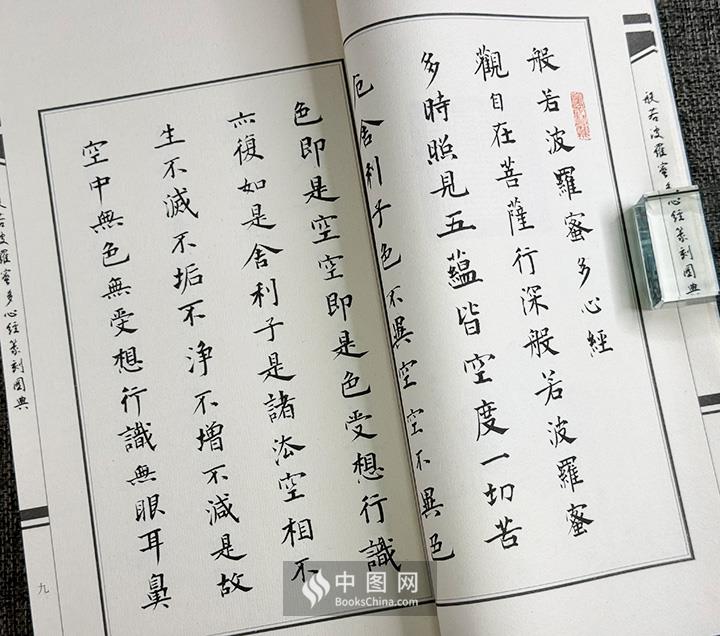 般若波羅蜜多心经篆刻图典
般若波羅蜜多心經
觀自在菩薩行深般若波羅蜜
多時照見五蘊皆空度一切苦
厄舍利子色不異空空不異色
色即是空空即是色受想行識
亦復如是舍利子是諸法空相不
生不滅不垢不淨不增不減是故
空中無色無受想行識無眼耳鼻
般若波羅蜜多心经篆刻图典
九
中图网
BooksChina.com